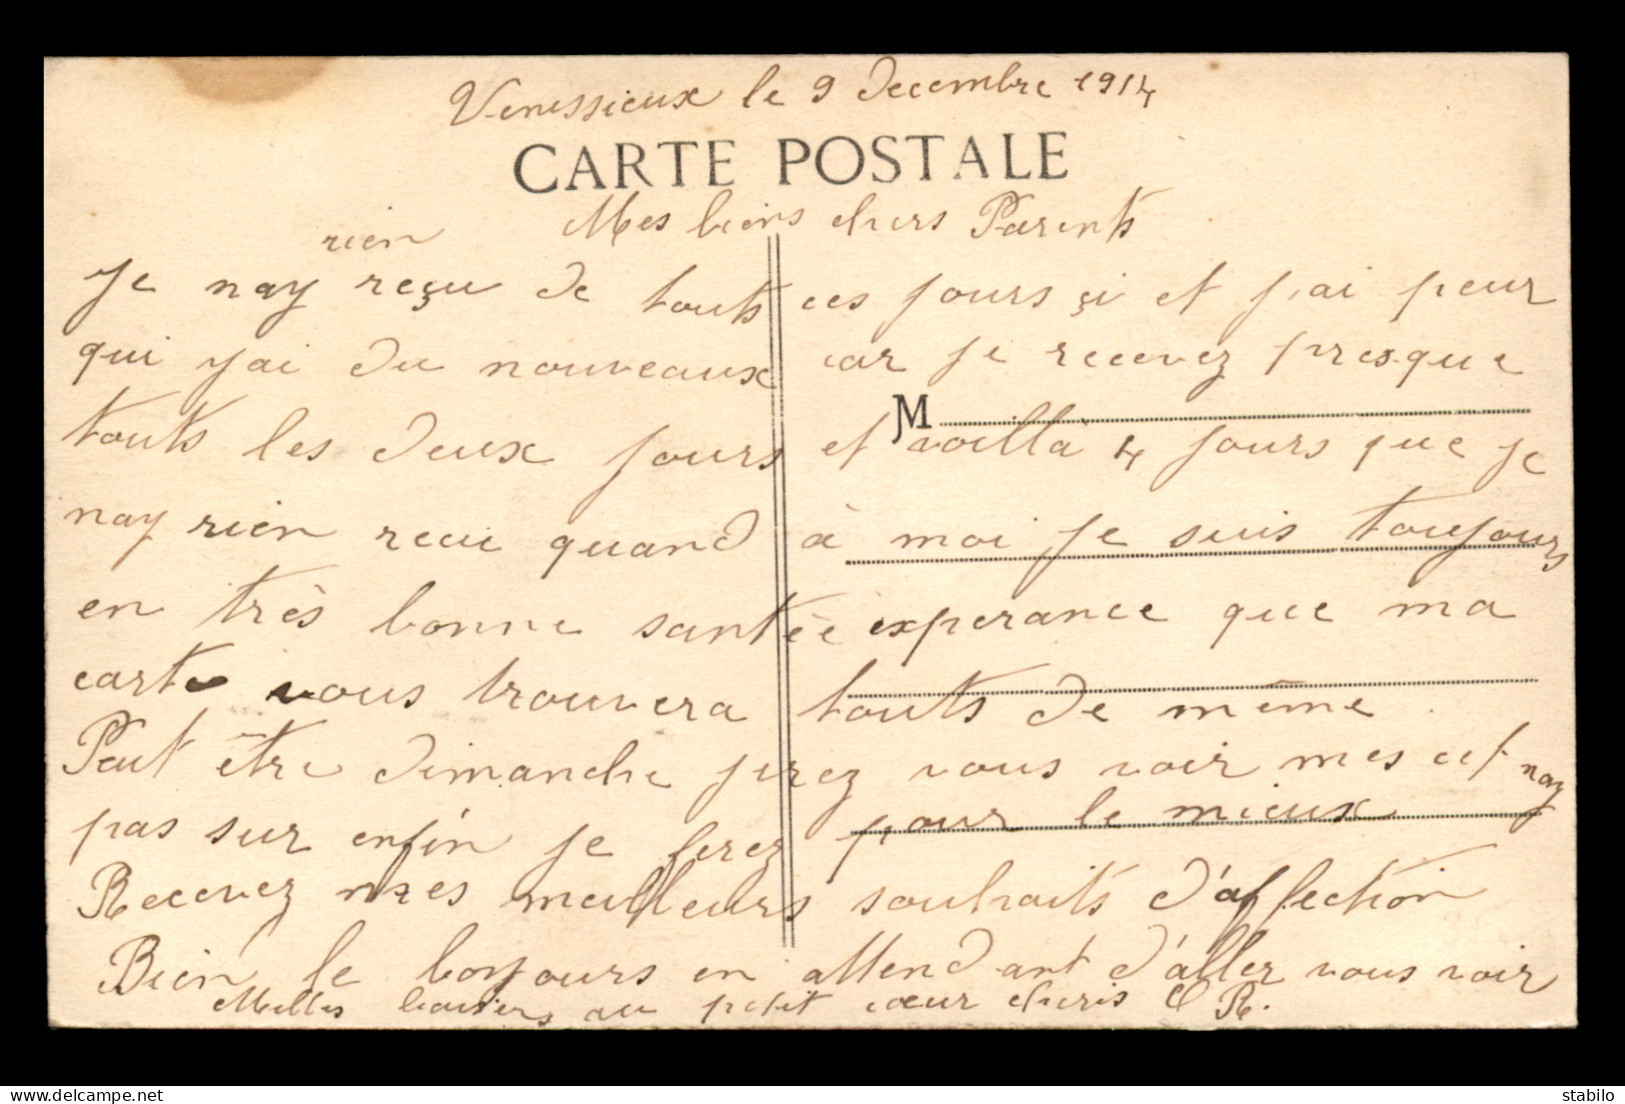 Venissieux le 9 decembre 1914
CARTE POSTALE
Mes biens chers Parents
rien
Je nay reçu de touts ces jours çi et j'ai peur
qui yai du nouveaux car je recevez presque
M
touts les deux jours et voillà 4 jours que je
nay rien recu quand à moi je suis toujours
en très bonne santée experance que ma
carte vous trouvera touts de même.
Peut être dimanche jirez vous voir mes cet nay
pas sur enfin je ferez pour le mieux
Recevez mes meilleurs souhaits d'affection
Bien le bonjours en attendant d'aller vous voir
Milles baisers au petit cœur cheris C R.
stabilo